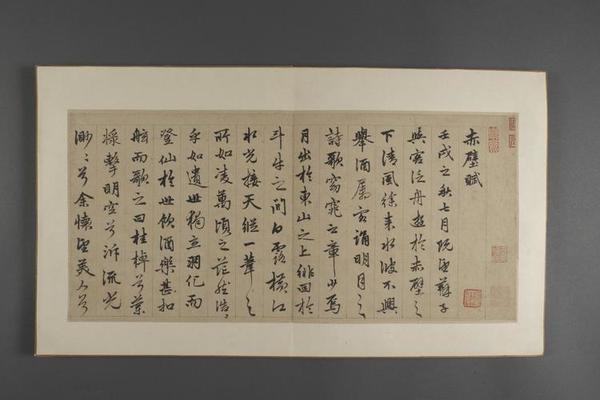 赤壁賦
壬戌之秋七月既望蘇子
與客泛舟遊於赤壁之
下清風徐來水波不興
舉酒屬客誦明月之
詩歌窈窕之章少焉
月出於東山之上徘回於
斗牛之間白露橫江
水光接天縱一葦之
所如凌萬頃之茫然浩〻
乎如遺世獨立羽化而
登仙於是飲酒樂甚扣
舷而歌之曰桂棹兮蘭
槳擊明空兮泝流光
渺〻兮余懷望美人兮